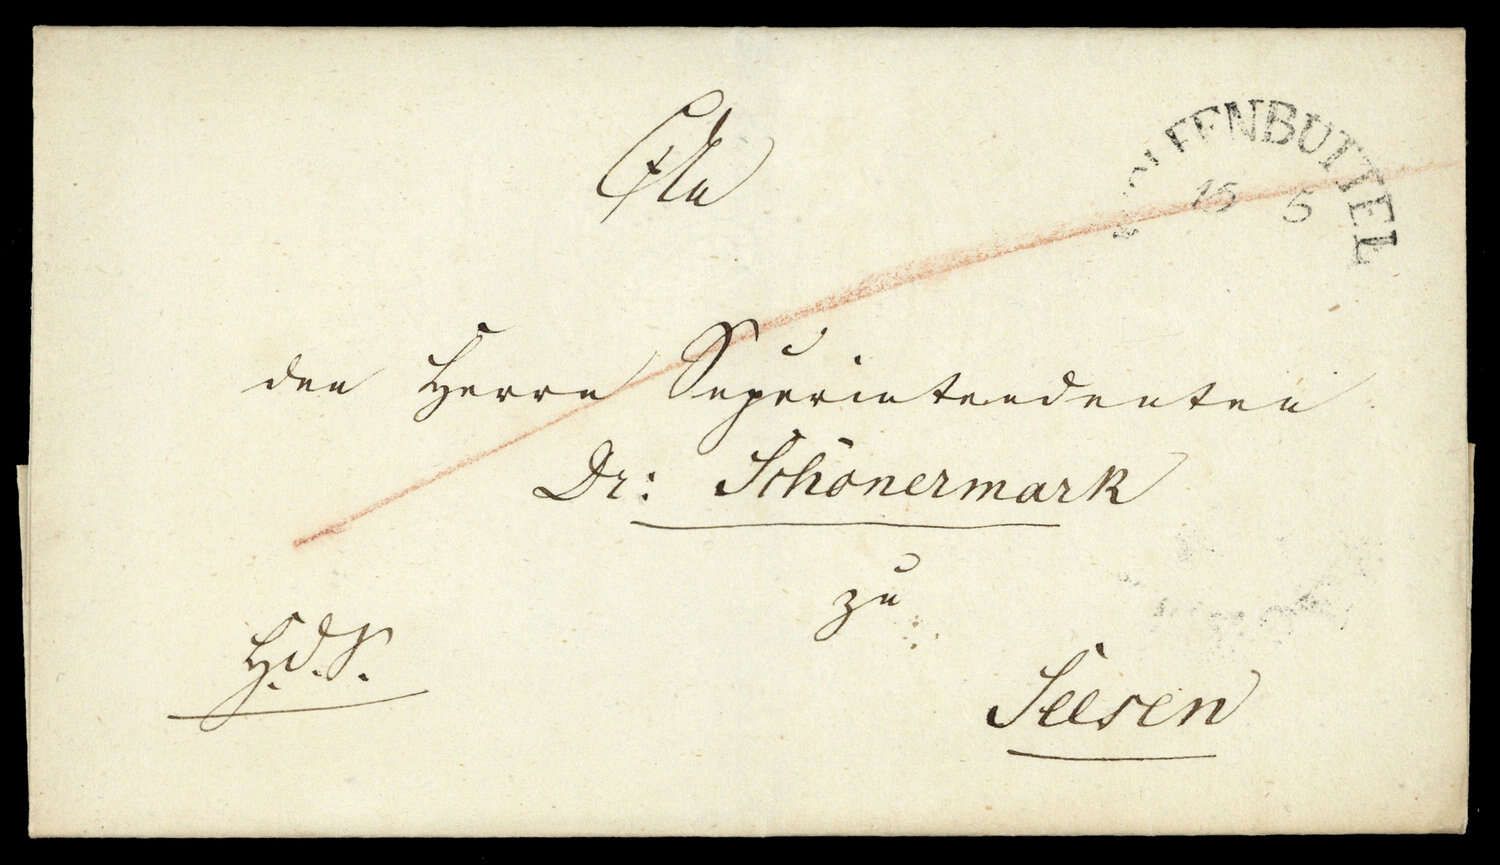 WOLFENBUTTEL
15 5
An
den Herrn Superintendenten
Dr: Schönermark
zu
H. d. S.
Seesen